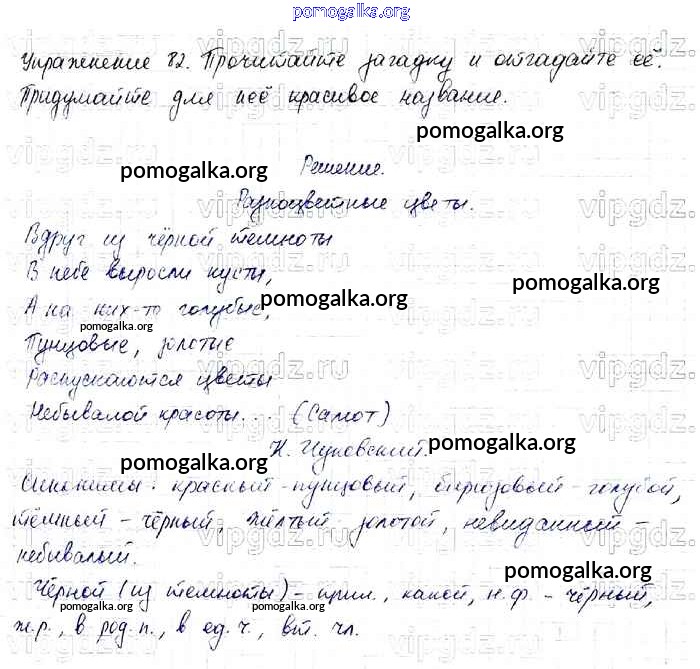 pomogalka.org
Упражнение 82. Прочитайте загадку и отгадайте её.
Придумайте для неё красивое название.
pomogalka.org
pomogalka.org
Решение.
Разноцветные цветы.
Вдруг из чёрной темноты
В небе выросли кусты,
pomogalka.org
А на них-то голубые,
pomogalka.org
Пунцовые, золотые
Распускаются цветы
Небывалой красоты... (Салют)
К. Чуковский.
pomogalka.org
pomogalka.org
Синонимы: красный - пунцовый, бирюзовый - голубой,
тёмный - чёрный, жёлтый - золотой, невиданный -
небывалый.
pomogalka.org
Чёрной (из темноты) - прил., какой, н.ф. - чёрный,
pomogalka.org
pomogalka.org
ж.р., в род.п., в ед.ч., вт. чл.
vipgdz.ru